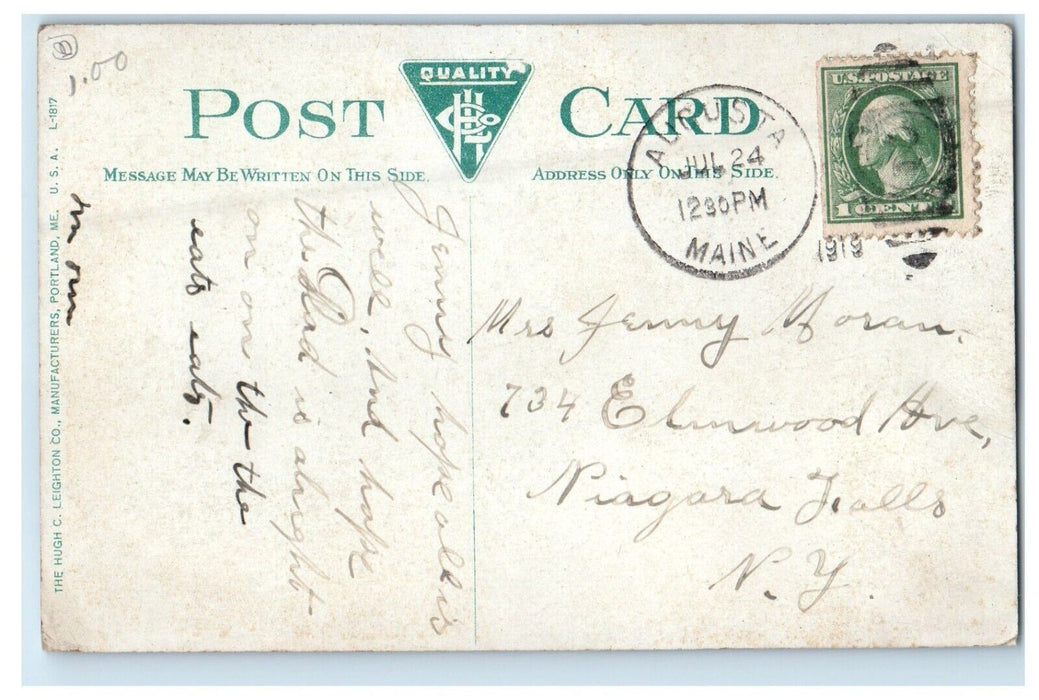 1.00
POST CARD
QUALITY
HCL Co
MESSAGE MAY BE WRITTEN ON THIS SIDE.
ADDRESS ONLY ON THIS SIDE.
AUGUSTA
JUL 24
1230PM
MAINE
1919
U.S. POSTAGE
1 CENT
Mrs Jenny Moran.
734 Elmwood Ave,
Niagara Falls
N.Y.
Jenny hope all is
well, and hope
the Dad is alright
on on the the
eats eats.
THE HUGH C. LEIGHTON CO., MANUFACTURERS, PORTLAND, ME. U. S. A. L-1817